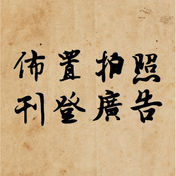 佈置拍照
刊登廣告